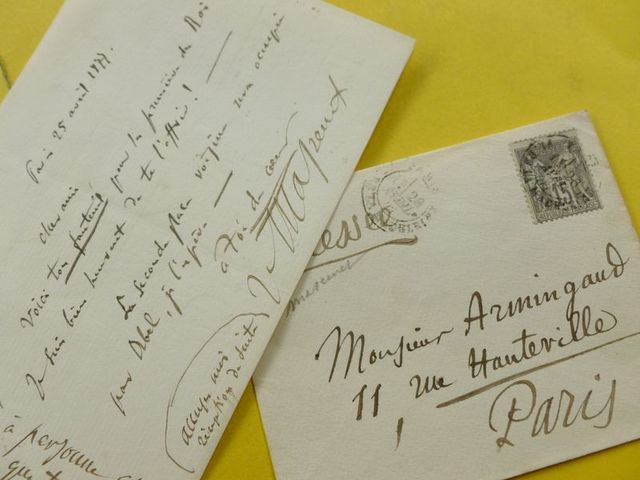 Paris 25 avril 1877.
cher ami
Voici ton fauteuil pour la première du Roi
Je suis bien heureux de te l'offrir!
La seconde place voisine sera occupée
par Abel, je l'espère —
à toi de cœur
J. Massenet
accuse moi
réception de suite
à personne
que
Massenet
15
Monsieur Armingaud
11, rue Hauteville
Paris